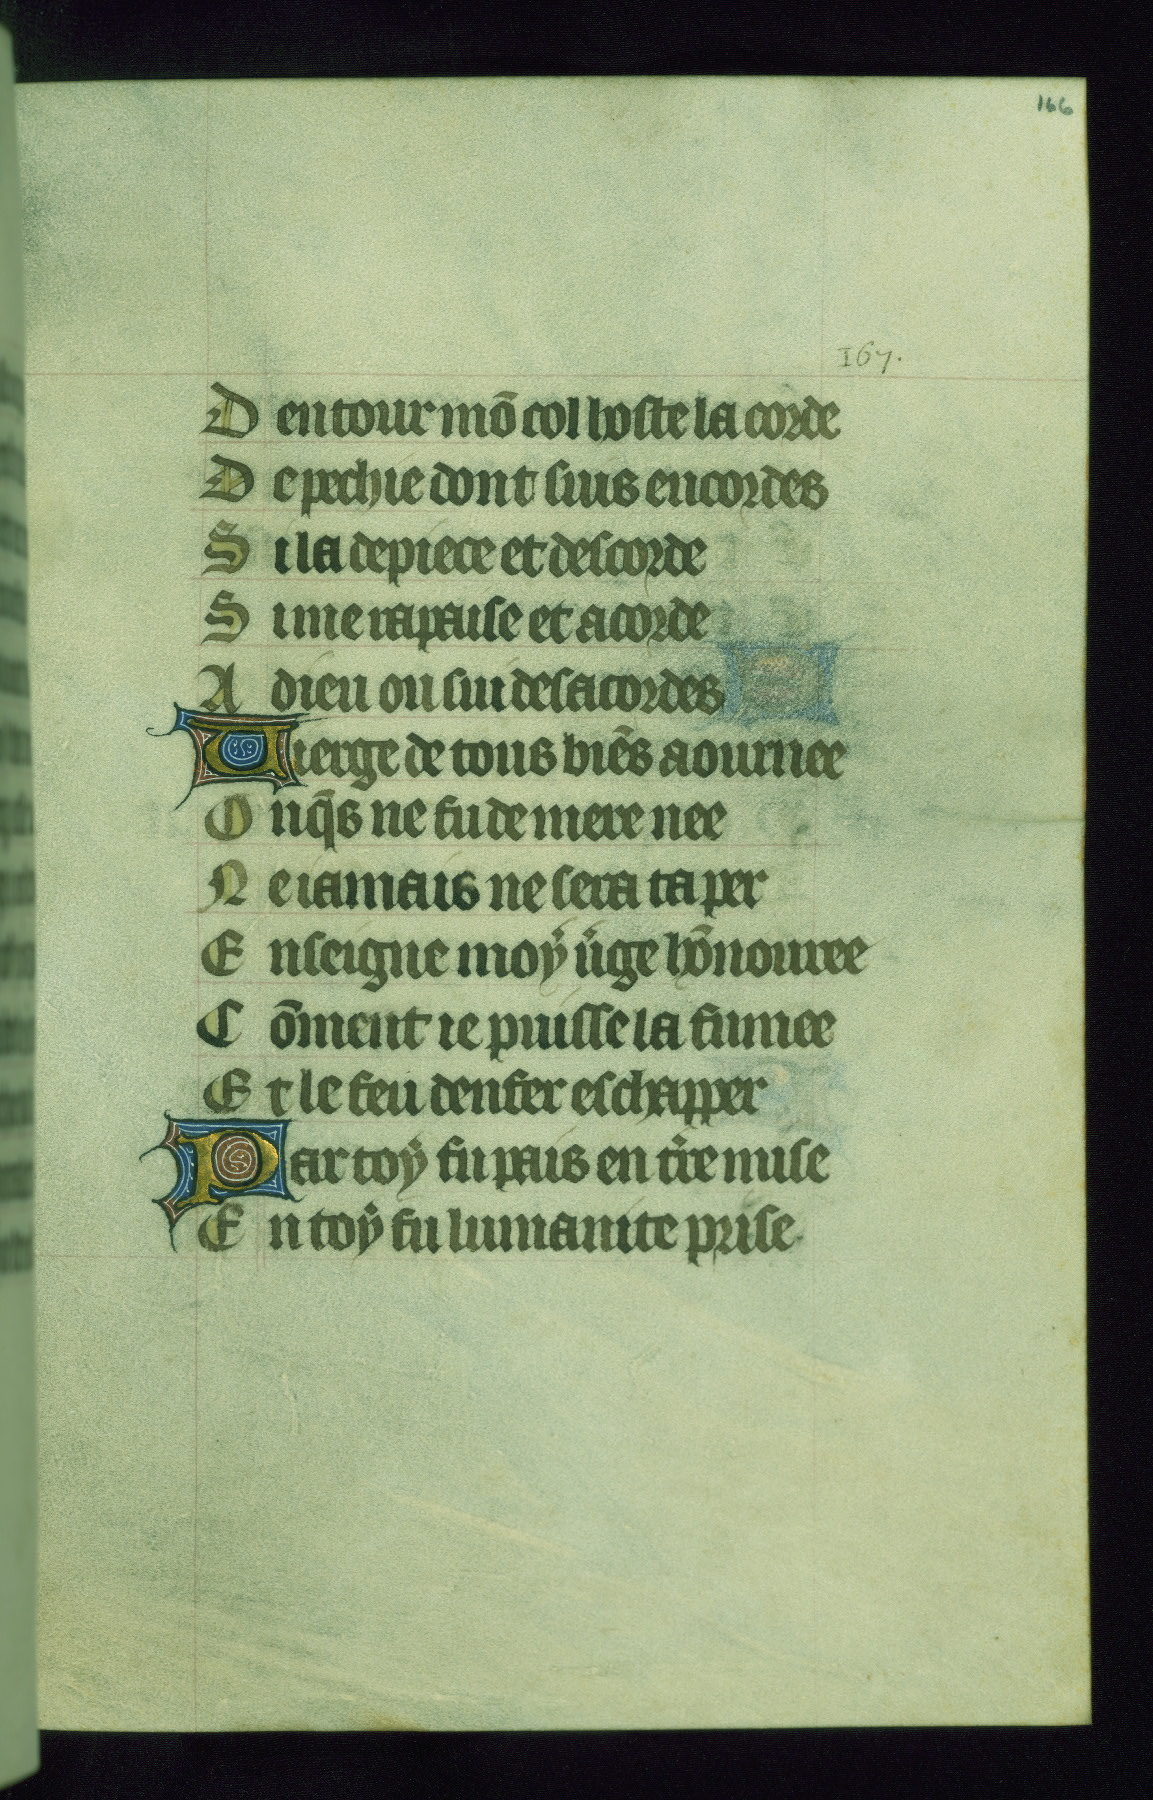 166
167.
D entour mō col hoste la corde
D e pechie dont suis encordes
S i la depiece et descorde
S i me rapaise et acorde
A dieu ou sui desacordes
Uierge de tous biēs aournee
O nq̄s ne fu de mere nee
N e iamais ne sera ta per
E nseigne moy v̄ge hōnouree
C ōment ie puisse la fumee
E t le feu denfer eschapper
Par toy fu pais en tr̄e mise
E n toy fu lumanite prise